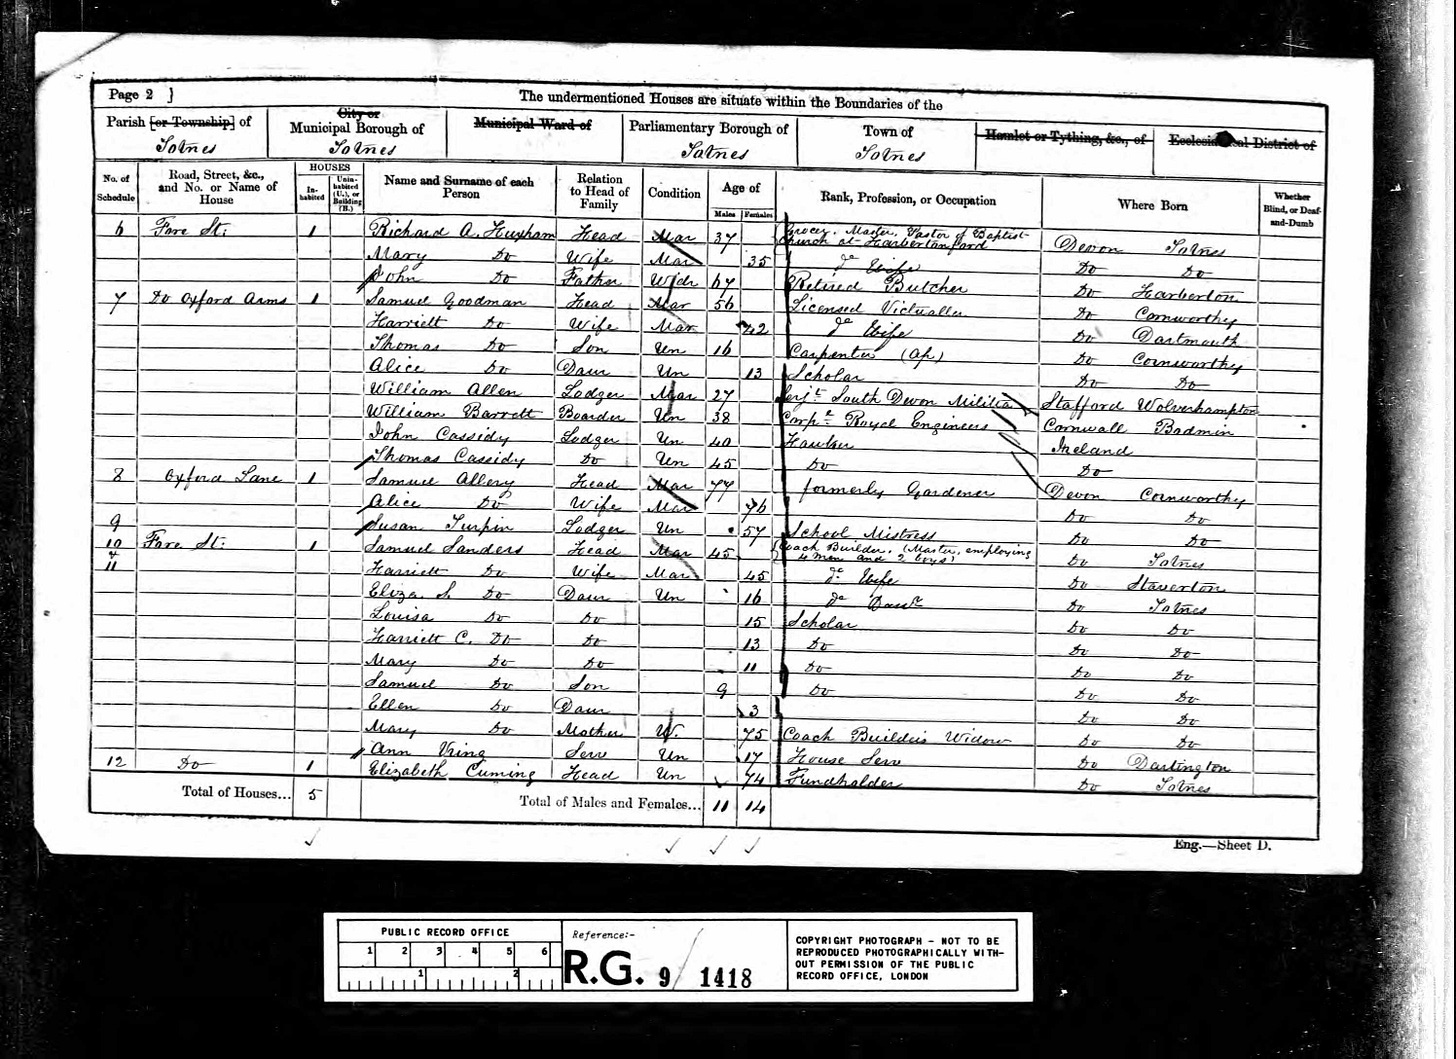 Page 2 }
The undermentioned Houses are situate within the Boundaries of the
Parish [or Township] of
City or
Municipal Borough of
Municipal Ward of
Parliamentary Borough of
Town of
Hamlet or Tything, &c., of
Ecclesiastical District of
Totnes Totnes Totnes Totnes
No. of Schedule
Road, Street, &c., and No. or Name of House
HOUSES
In-habited
Unin-habited (U.), or Building (B.)
Name and Surname of each Person
Relation to Head of Family
Condition
Age of
Males Females
Rank, Profession, or Occupation
Where Born
Whether Blind, or Deaf-and-Dumb
6 Fore St: 1 Richard A. Huxham Head Mar 37 Grocer. Master, Pastor of Baptist Church at Harbertonford Devon Totnes
Mary Do Wife Mar 35 do Wife Do Do
John Do Father Widr 67 Retired Butcher Do Harberton
7 Do Oxford Arms 1 Samuel Goodman Head Mar 56 Licensed Victualler Do Cornworthy
Harriett Do Wife Mar 42 do Wife Do Dartmouth
Thomas Do Son Un 16 Carpenter (Ap) Do Cornworthy
Alice Do Daur Un 13 Scholar Do Do
William Allen Lodger Mar 27 Serjt South Devon Militia Stafford Wolverhampton
William Barrett Boarder Un 38 Corpl Royal Engineers Cornwall Bodmin
John Cassidy Lodger Un 40 Hawker Ireland
Thomas Cassidy Do Un 45 Do Do
8 Oxford Lane 1 Samuel Allery Head Mar 77 formerly Gardener Devon Cornworthy
Alice Do Wife Mar 76 Do Do
9 Susan Turpin Lodger Un 57 School Mistress Do Do
10 & 11 Fore St: 1 Samuel Sanders Head Mar 45 Coach Builder. (Master, employing 4 men and 2 boys) Do Totnes
Harriett Do Wife Mar 45 do Wife Do Staverton
Eliza S. Do Daur Un 16 do Daur Do Totnes
Louisa Do Do 15 Scholar Do Do
Harriett C. Do Do 13 Do Do Do
Mary Do Do 11 Do Do Do
Samuel Do Son 9 Do Do Do
Ellen Do Daur 3 Do Do
Mary Do Mother W. 75 Coach Builders Widow Do Do
Ann Vring Serv Un 17 House Serv Do Dartington
12 Do 1 Elizabeth Cuming Head Un 74 Fundholder Do Totnes
Total of Houses... 5 Total of Males and Females... 11 14
Eng.—Sheet D.
PUBLIC RECORD OFFICE
1 2 3 4 5 6
1 2
Reference:-
R.G. 9/1418
COPYRIGHT PHOTOGRAPH - NOT TO BE
REPRODUCED PHOTOGRAPHICALLY WITH-
OUT PERMISSION OF THE PUBLIC
RECORD OFFICE, LONDON